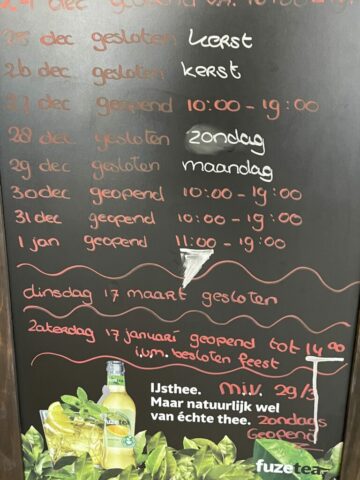 24 dec geopend v.a. 10:00
25 dec gesloten kerst
26 dec gesloten kerst
27 dec geopend 10:00 - 19:00
28 dec gesloten zondag
29 dec gesloten maandag
30 dec geopend 10:00 - 19:00
31 dec geopend 10:00 - 19:00
1 jan geopend 11:00 - 19:00
dinsdag 17 maart gesloten
zaterdag 17 januari geopend tot 14:00
i.v.m. besloten feest
IJsthee. m.i.v. 29/3
Maar natuurlijk wel
van échte thee. zondags
Geopend
fuzetea
fuzetea